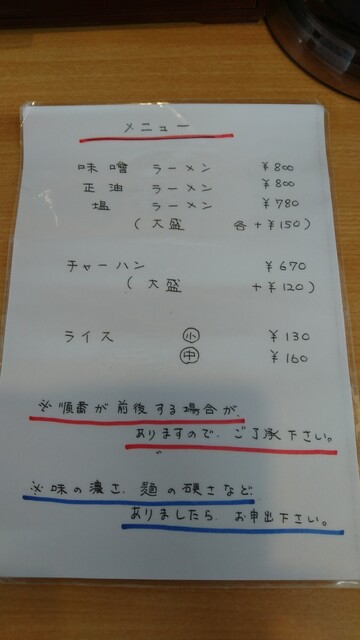 メニュー
味噌 ラーメン ¥800
正油 ラーメン ¥800
塩 ラーメン ¥780
(大盛 各+¥150)
チャーハン ¥670
(大盛 +¥120)
ライス ㊥小 ¥130
㊥ ¥160
※順番が前後する場合が、
ありますので、ご了承下さい。
※味の濃さ、麺の硬さなど、
ありましたら、お申出下さい。